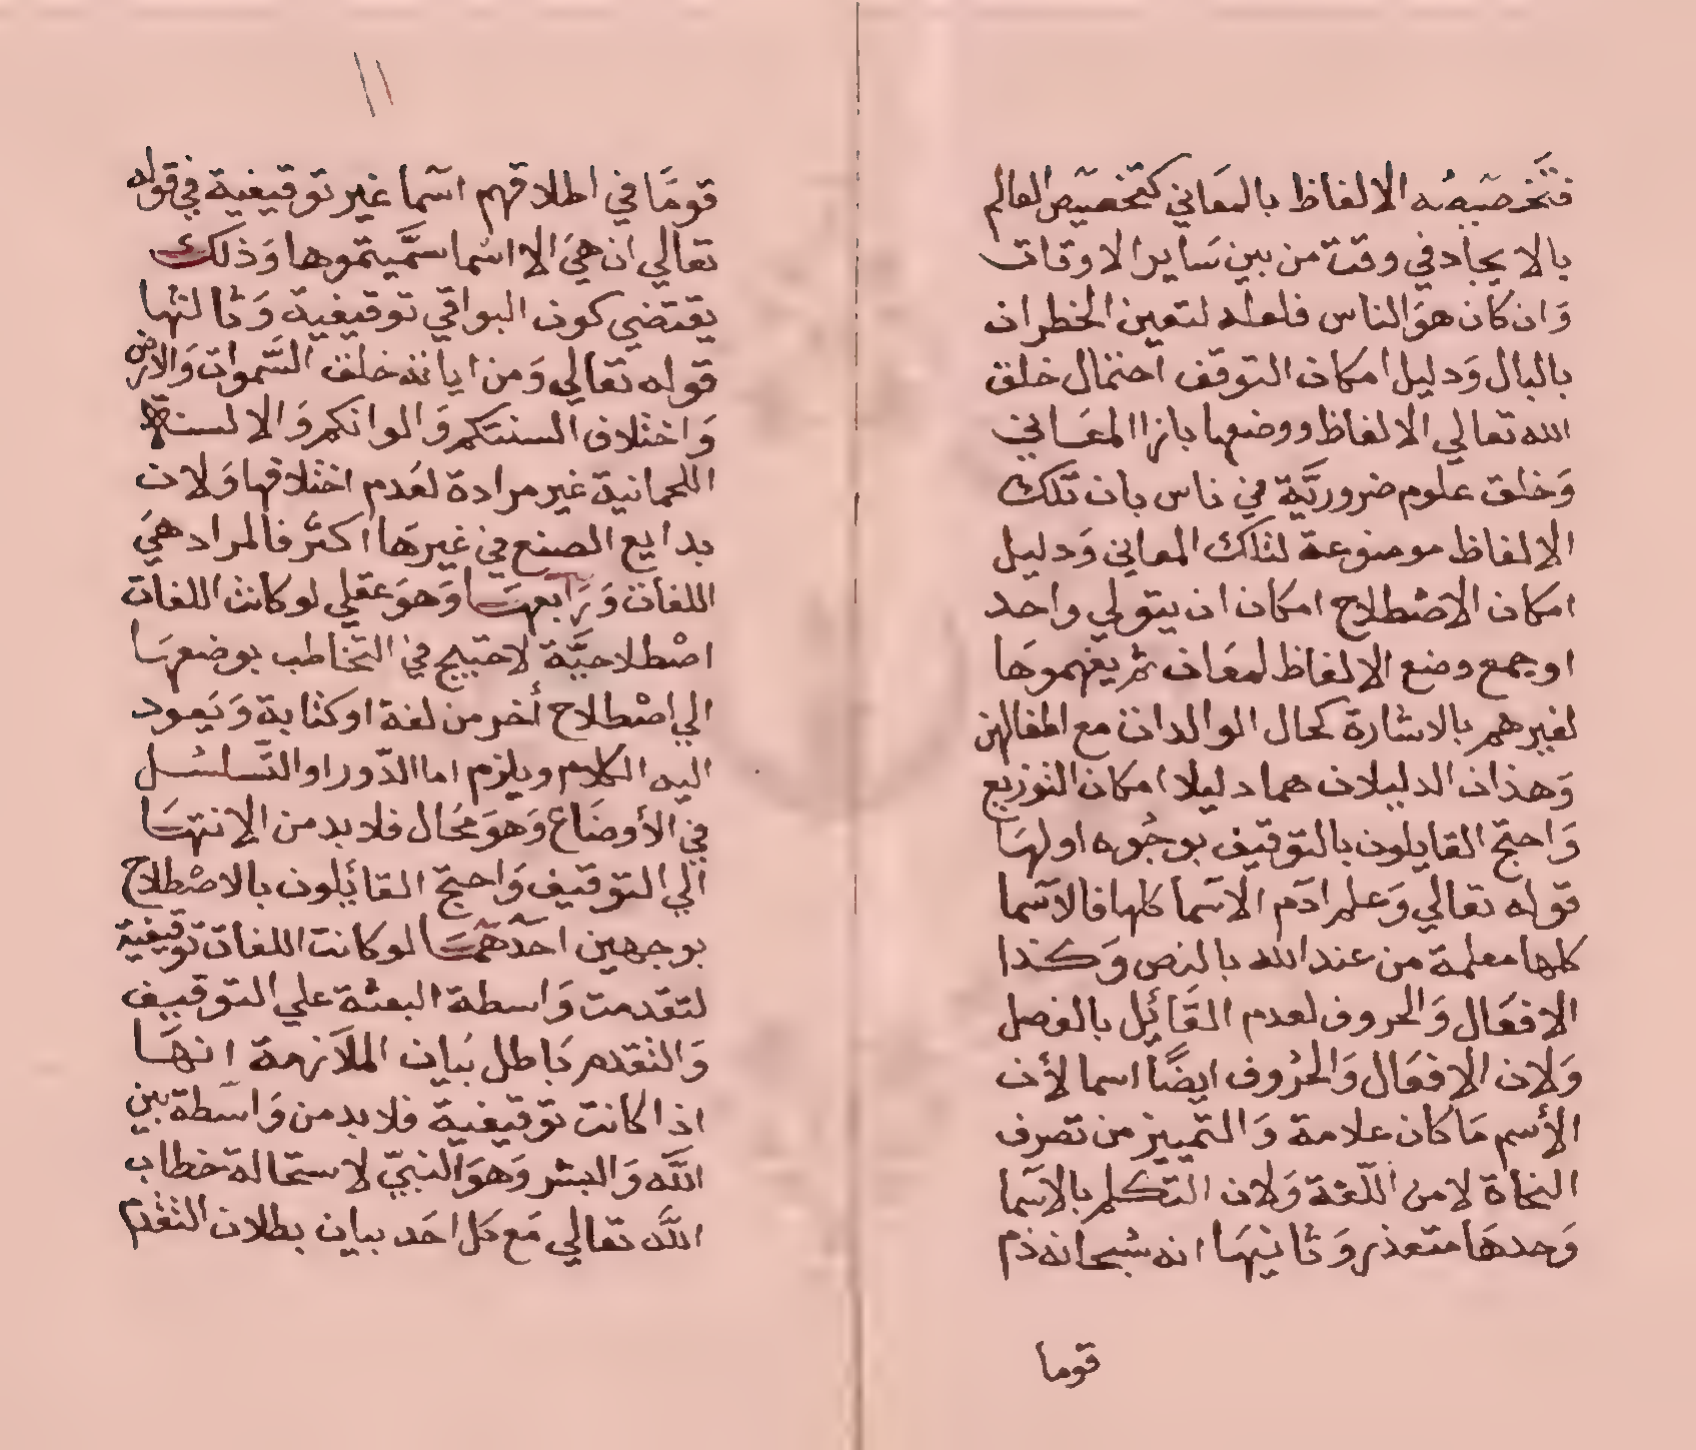 فتخصيصه الالفاظ بالمعَاني كتخصيص العالم
بالايجاد في وقت من بين سَاير الاوقات
وَان كان هوَ الناس فلعله لتعين الخطران
بالبال وَدليل امكان التوقف احتمال خلق
الله تعالي الالفاظ ووضعها بازا المعَاني
وَخلق علوم ضروريَّة في ناس بان تلك
الالفاظ موضوعة لتلك المعاني وَدليل
امكان الاصْطلاح امكان ان يتولي واحد
او جمع وضع الالفاظ لمعَان ثم يفهموهَا
لغيرهم بالاشارة كحال الوالدات مع اطفالهن
وَهذان الدليلان هما دليلا امكان التوزيع
وَاحتجّ القايلون بالتوقيف بوجُوه اولهَا
قوله تعالي وَعلم ادَم الاسَما كلها فالاسَما
كلها معلمة من عند الله بالنص وَكذا
الافعَال وَالحروف لعدم القَائِل بالفصل
وَلان الافعَال وَالحرُوف ايضًا اسما لأن
الأسم مَا كان علامة وَالتمييز من تصرف
النحاة لا من اللّغة وَلان التكلم بالاسَما
وَحدهَا متعذر وَثانيهَا انه سُبحانه ذم
قوما
١١
قومًا في اطلاقهم اسَما غير توقيفية في قوله
تعالي ان هيَ الا اسْما سمَّيتموها وَذلك
يقتضي كون البواقي توقيفية وَثالثها
قوله تعالي وَمن اياته خلق السَّموات وَالارض
وَاختلاف السنتكم وَالوانكم وَالالسنة
اللحمانية غير مرادة لعَدم اختلافها وَلان
بدايع الصنع في غيرهَا اكثر فالمراد هيَ
اللغات وَرَابعهَا وَهوَ عقلي لو كانت اللغات
اصْطلاحيَّة لاحتيج في التخاطب بوضعهَا
الي اصْطلاح أخر من لغة او كتابة وَيَعود
اليه الكلام ويلزم اما الدّور او التّسلسْل
في الأوضَاع وَهوَ مُحَال فلا بد من الانتهَا
الي التوقيف وَاحتجّ القائِلون بالاصْطلاح
بوجهين احَدهمَا لو كانت اللغات توقيفية
لتقدمت وَاسطة البعثة علي التوقيف
وَالتقدم بَاطل بيَان الملاَزمة انهَا
اذا كانت توقيفية فلا بد من وَاسَطة بين
الله وَالبشر وَهوَ النبيّ لاستحالة خطاب
الله تعالي مَع كل احَد بيان بطلان التقدم